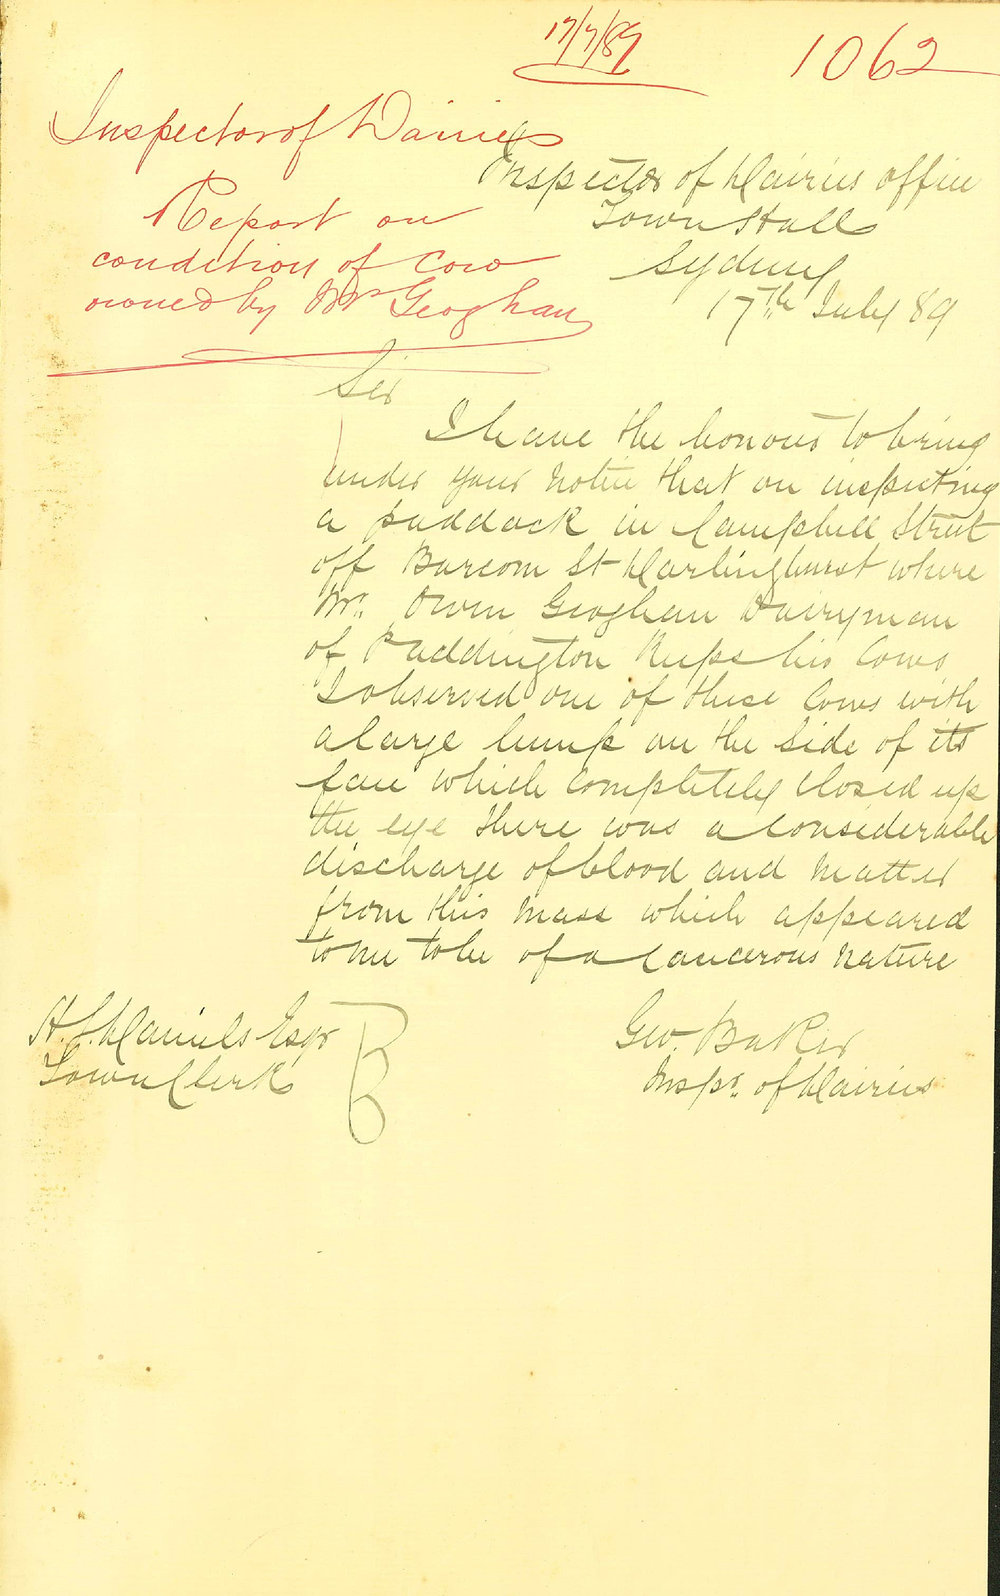 17/7/89
1062
Inspector of Dairies
Report on
condition of cow
owned by Mr Geoghan
Inspector of Dairies office
Town Hall
Sydney
17th July 89
Sir
I have the honour to bring
under your notice that on inspecting
a paddock in Campbell Street
off Barcom St Darlinghurst where
Mr. Owen Geoghan Dairyman
of Paddington Keeps his Cows
I observed one of these Cows with
a large lump on the side of its
face which completely closed up
the eye there was a considerable
discharge of blood and matter
from this mass which appeared
to me to be of a cancerous nature
H. J. Daniels Esqr
Town Clerk
Geo. Baker
Inspr. of Dairies